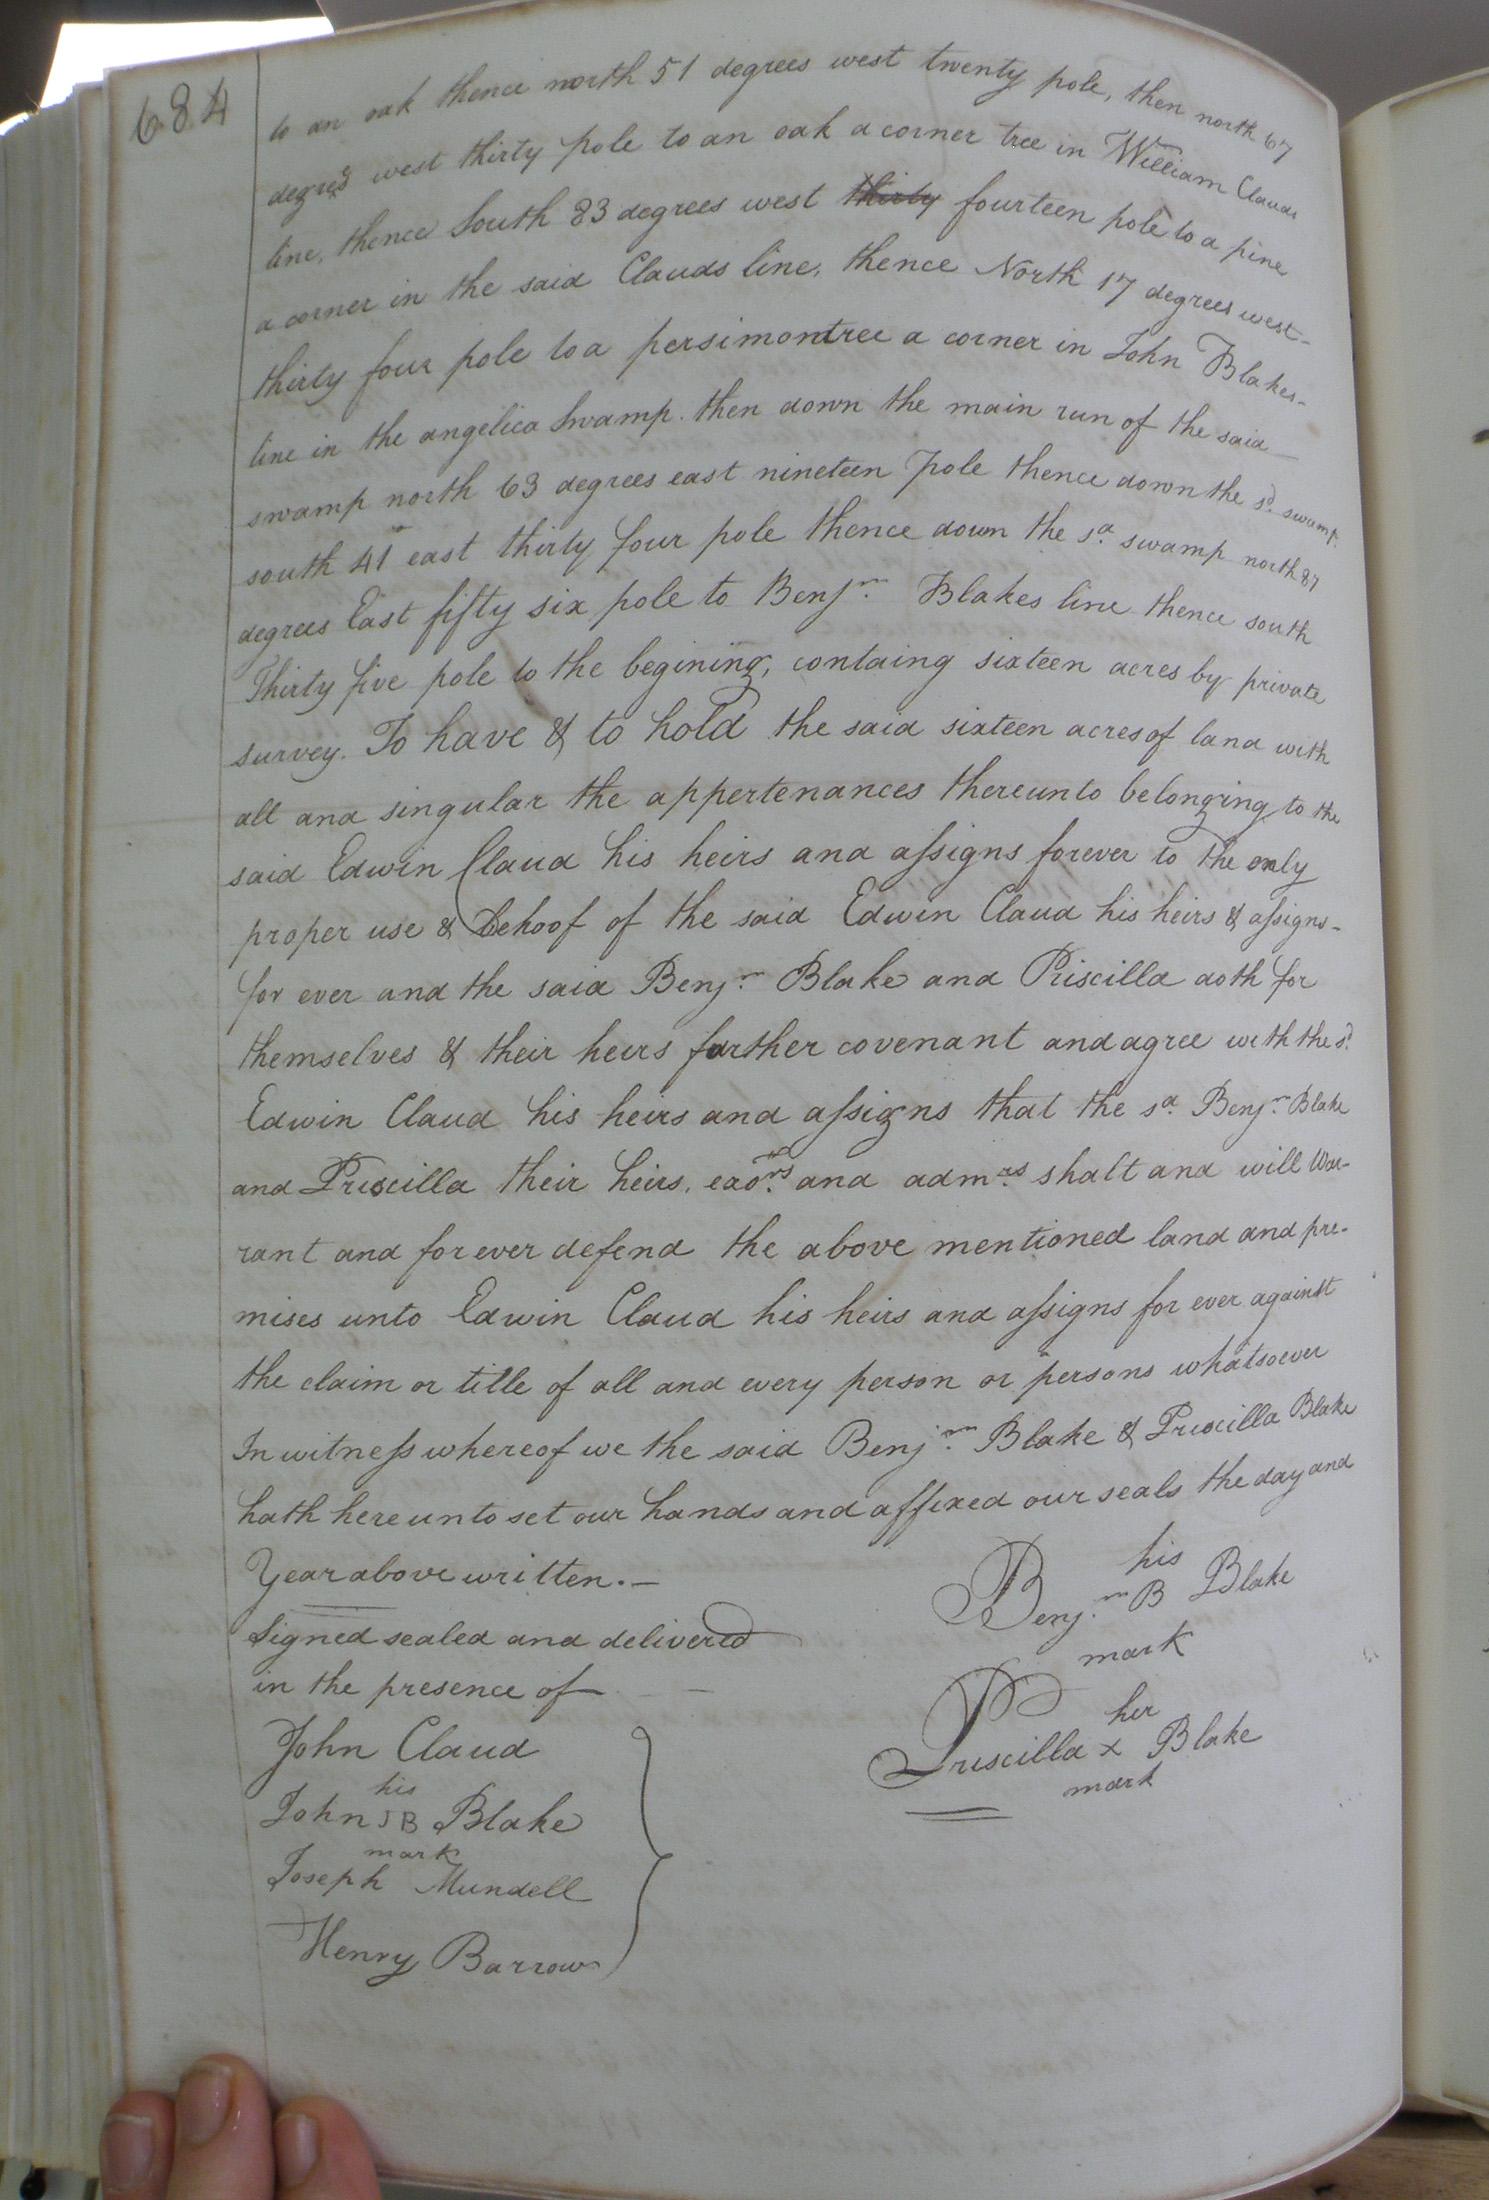 684
to an oak thence north 51 degrees west twenty pole, then north 67
degres west thirty pole to an oak a corner tree in William Clauds
line, thence South 83 degrees west thirty fourteen pole to a pine
a corner in the said Clauds line, thence North 17 degrees west-
thirty four pole to a persimontree a corner in John Blakes-
line in the angelica Swamp. then down the main run of the said
swamp north 63 degrees east nineteen pole thence down the sd. swamp
south 41 east thirty four pole thence down the sd. swamp north 87
degrees East fifty six pole to Benjn. Blakes line thence south
Thirty five pole to the begining, containg sixteen acres by private
survey. To have & to hold the said sixteen acres of land with
all and singular the appertenances thereunto belonging to the
said Edwin Claud his heirs and assigns forever to the only
proper use & behoof of the said Edwin Claud his heirs & assigns-
for ever and the said Benjn. Blake and Priscilla doth for
themselves & their heirs further covenant and agree with the sd.
Edwin Claud his heirs and assigns that the sd. Benjn. Blake
and Priscilla their heirs, exors. and admrs. shall and will War-
rant and forever defend the above mentioned land and pre-
mises unto Edwin Claud his heirs and assigns for ever against
the claim or title of all and every person or persons whatsoever
In witness whereof we the said Benjn. Blake & Priscilla Blake
hath hereunto set our hands and affixed our seals the day and
Year above written.-
his
Benjn. B Blake
mark
Signed sealed and delivered
in the presence of
her
Priscilla x Blake
mark
John Claud
his
John JB Blake
mark
Joseph Mundell
Henry Barrow